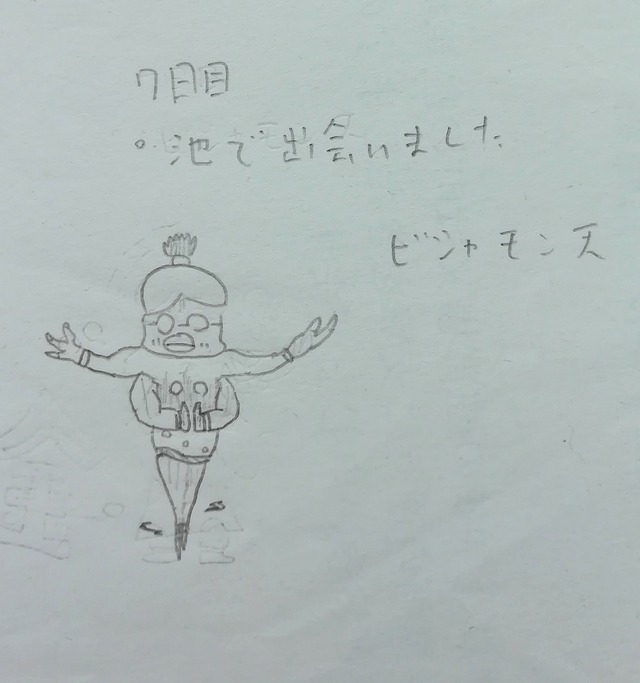 7日目
。池で出会いました
ビシャモン天